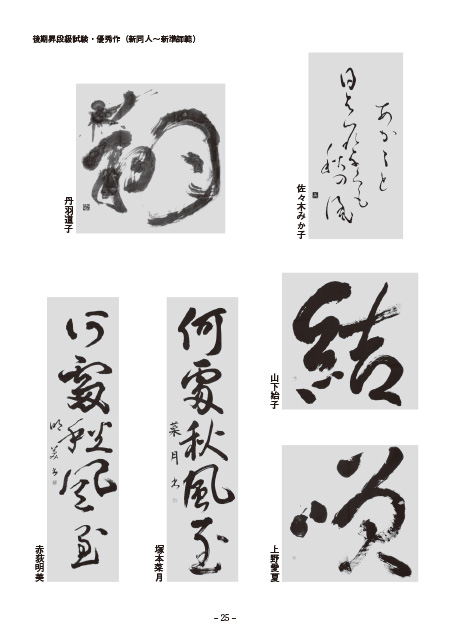 後期昇段級試験・優秀作（新同人～新準師範）
丹羽道子
あか〱と
日はつれなくも
秋の風
佐々木みか子
結
山下始子
咲
上野愛夏
何處秋風至
菜月書
塚本菜月
何處秋風至
明美書
赤荻明美
– 25 –